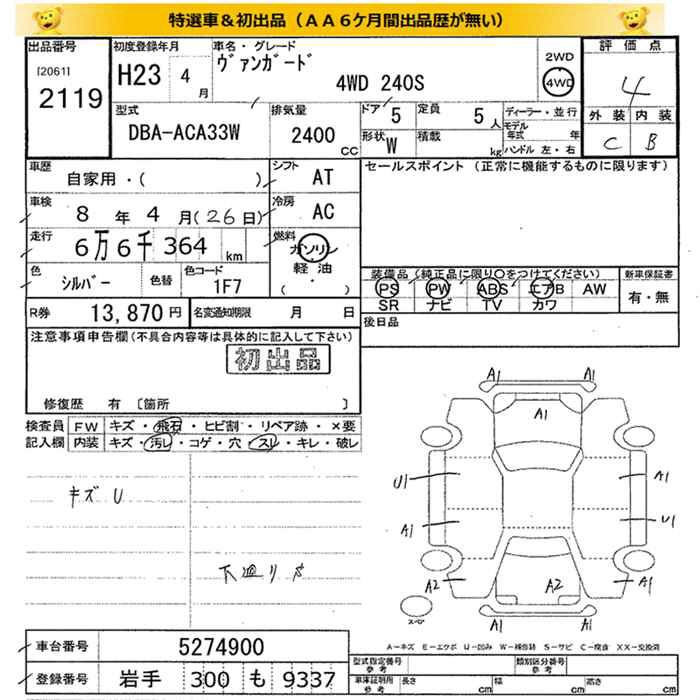 特選車＆初出品（ＡＡ６ケ月間出品歴が無い）
出品番号
[2061]
2119
初度登録年月
H23 4 月
車名・グレード
ヴァンガード
4WD 240S
2WD
4WD
評価点
4
外装 内装
C B
型式
DBA-ACA33W
排気量
2400 CC
ドア 5
定員 5 人
形状 W
積載 kg
ディーラー・並行
モデル年式 年
ハンドル 左・右
車歴
自家用・( )
シフト
AT
車検
8 年 4 月(26日)
冷房
AC
走行
6万6千364 km
燃料
ガソリン
軽油
( ・ )
色
シルバー
色替
色コード
1F7
R券
13,870 円
名変通知期限 月 日
セールスポイント（正常に機能するものに限ります）
装備品（純正品に限り○をつけてください）
PS PW ABS エアB AW
SR ナビ TV カワ
新車保証書
有・無
後日品
注意事項申告欄(不具合内容等は具体的に記入して下さい)
初出品
修復歴 有 〔箇所 〕
検査員記入欄
FW キズ・飛石・ヒビ割・リペア跡・×要
内装 キズ・汚レ・コゲ・穴・スレ・キレ・破レ
キズ U
下廻りサ
A1 A1
A1
U1 A1
A1 U1
A2 A2 A1
A1 A1
スペア
A－キズ E－エクボ U－凹み W－補修跡 S－サビ C－腐食 XX－交換済
車台番号
5274900
登録番号
岩手 300 も 9337
型式指定番号
参考
類別区分番号
参考
車庫証明用
参考
長さ cm
幅 cm
高さ cm